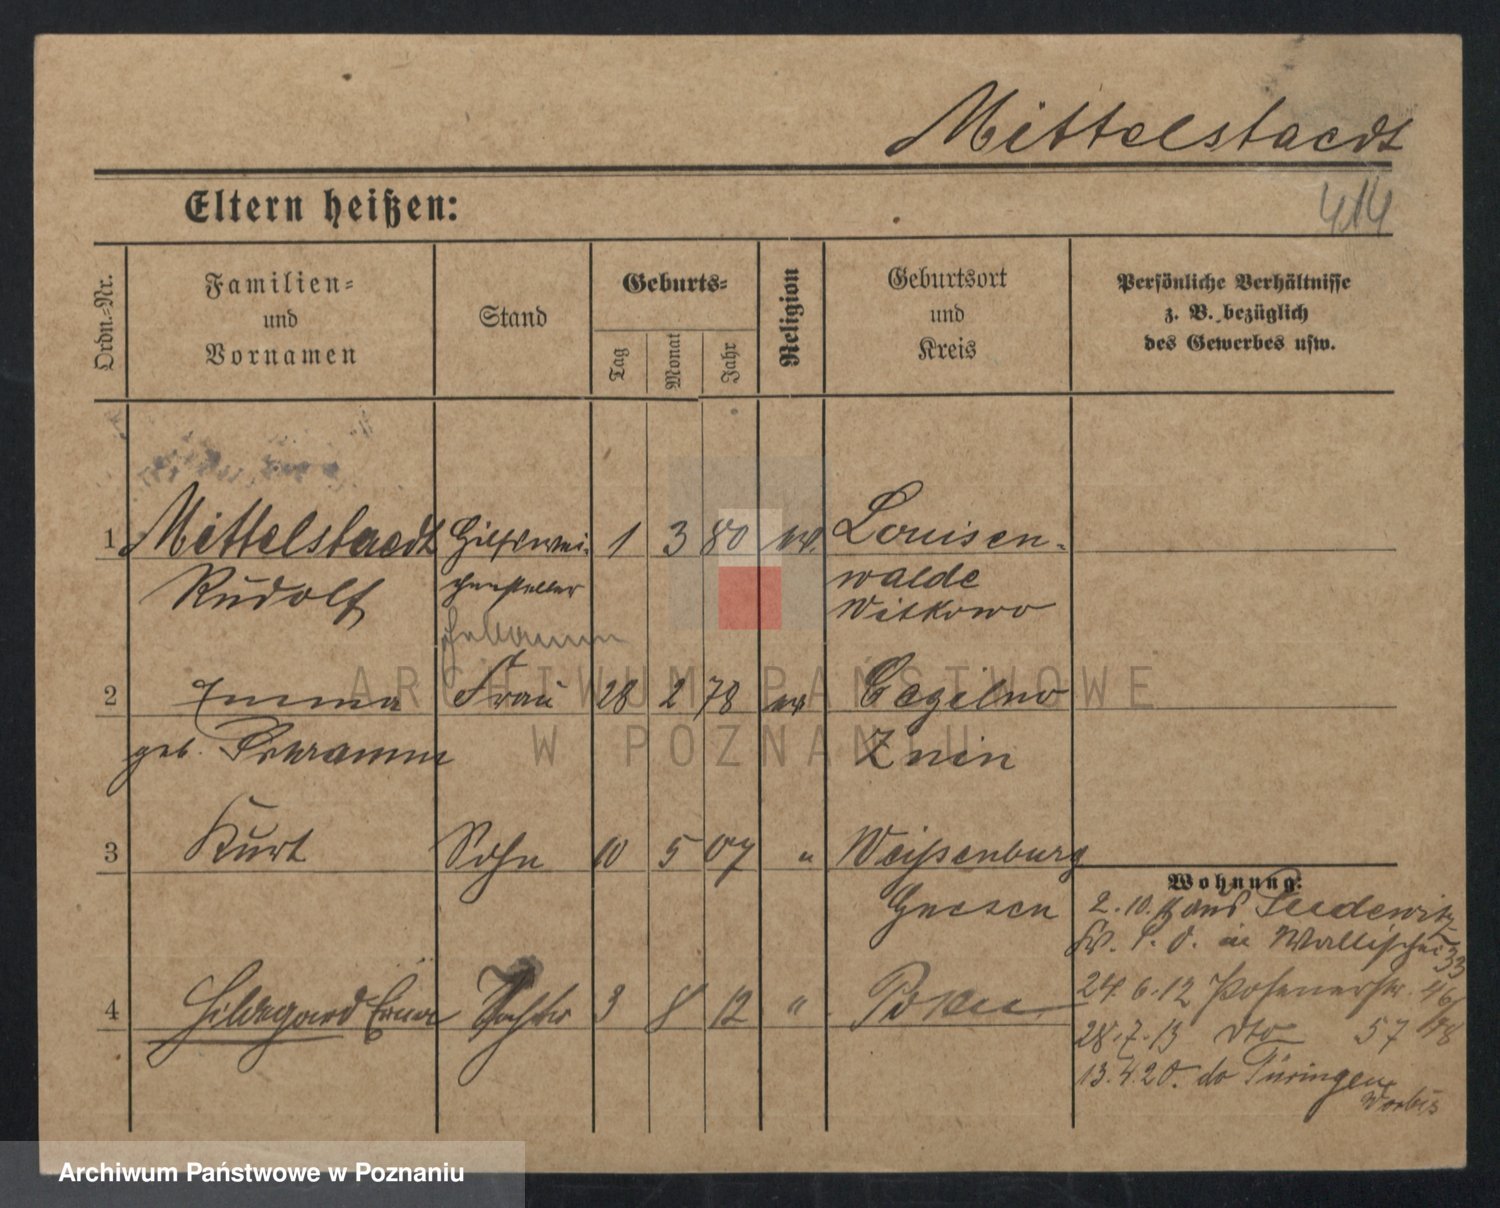 Mittelstaedt
414
Eltern heißen:
Ordn.-Nr.
Familien-
und
Vornamen
Stand
Geburts-
Tag
Monat
Jahr
Religion
Geburtsort
und
Kreis
Persönliche Verhältnisse
z. B. bezüglich
des Gewerbes usw.
1 Mittelstaedt Hilfswei- 1 3 80 ev. Louisen-
Rudolf chensteller walde
Witkowo
2 Emma Frau 28 2 78 ev
geb. Schramm Znin
3 Kurt Sohn 10 5 07 " Weißenburg
Gnesen
Wohnung:
2.10. aus
in Wallischei 33
4 Hildegard Erna Tochter 3 8 12 " Posen
24.6.12 Posenerstr. 46/48
28.7.13 dto 57
13.4.20. do Türingen
Worbis
ARCHIWUM PAŃSTWOWE
W POZNANIU
Archiwum Państwowe w Poznaniu